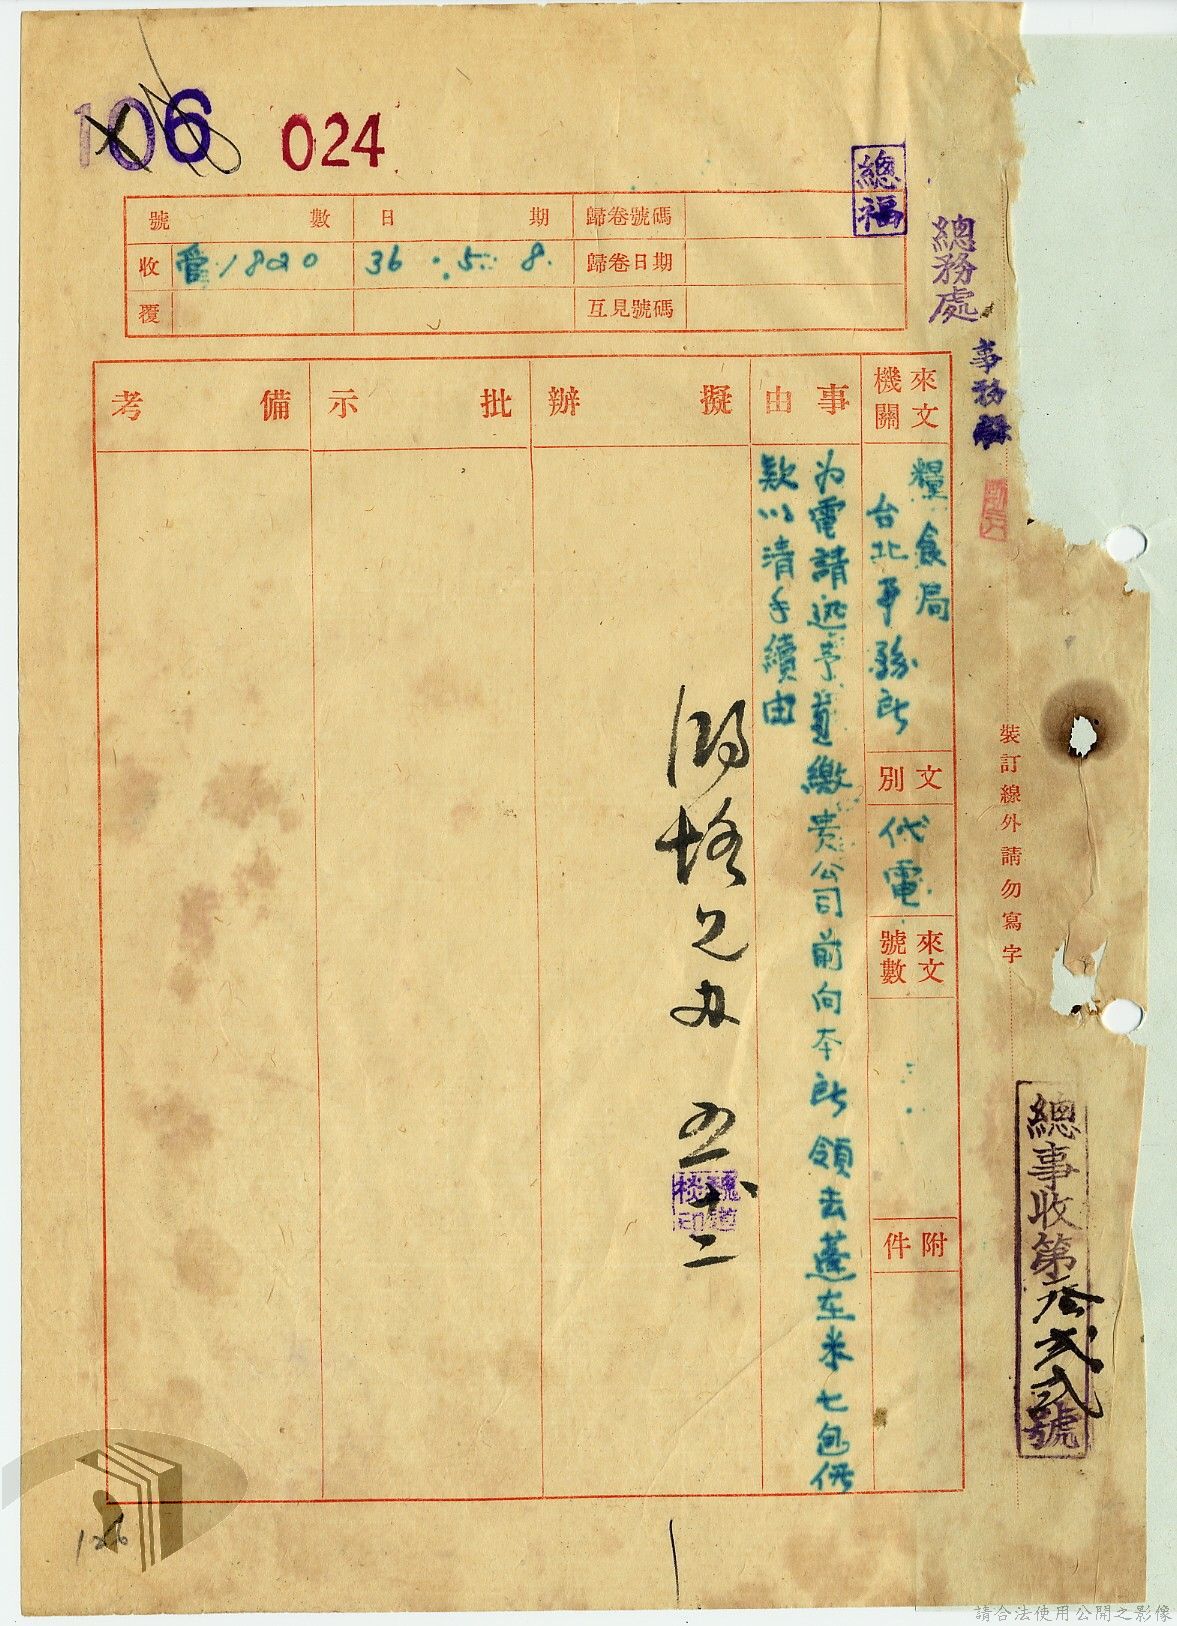 106
024
總福
號數
日期
歸卷號碼
收
1820
36.5.8.
歸卷日期
覆
互見號碼
總務處
事務
來文機關
事由
擬辦
批示
備考
糧食局
台北事務所
文別
代電
來文號數
附件
為電請迅予算繳貴公司前向本所領去蓬莱米七包價
款以清手續由
五十二
裝訂線外請勿寫字
總事收第叁弍弍號
126
請合法使用公開之影像